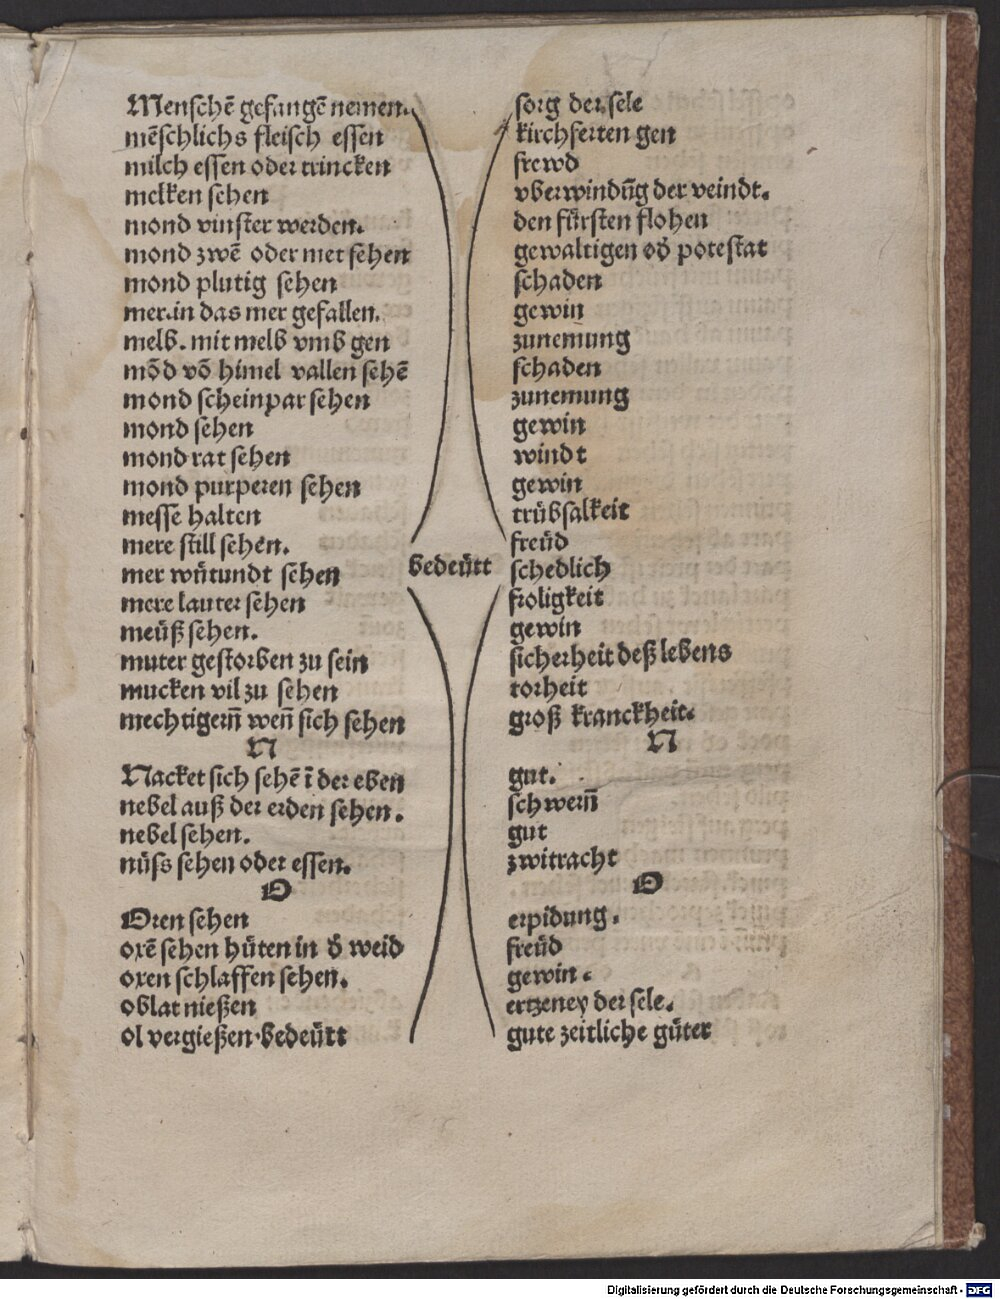 Menschē gefangē nemen.
mēschlichs fleisch essen
milch essen oder trincken
melken sehen
mond vinster werden.
mond zwē oder mer sehen
mond plutig sehen
mer.in das mer gefallen.
melb. mit melb vmb gen
mōd vō himel vallen sehē
mond scheinpar sehen
mond sehen
mond rat sehen
mond purperen sehen
messe halten
mere still sehen.
mer wütundt sehen
mere lauter sehen
meüß sehen.
muter gestorben zu sein
mucken vil zu sehen
mechtigern̄ wen̄ sich sehen
N
Nacket sich sehē ī der eben
nebel auß der erden sehen.
nebel sehen.
nüss sehen oder essen.
O
Oren sehen
oxē sehen hüten in d̓ weid
oxen schlaffen sehen.
oblat nießen
ol vergießen.bedeütt
bedeütt
sorg der sele
kirchferten gen
frewd
vberwindūg der veindt.
den fürsten flohen
gewaltigen od̓ potestat
schaden
gewin
zunemung
schaden
zunemung
gewin
windt
gewin
trübsalkeit
freüd
schedlich
froligkeit
gewin
sicherheit deß lebens
torheit
groß kranckheit.
N
gut.
schwern̄
gut
zwitracht
O
erpidung.
freüd
gewin.
ertzeney der sele.
gute zeitliche güter
Digitalisierung gefördert durch die Deutsche Forschungsgemeinschaft - DFG